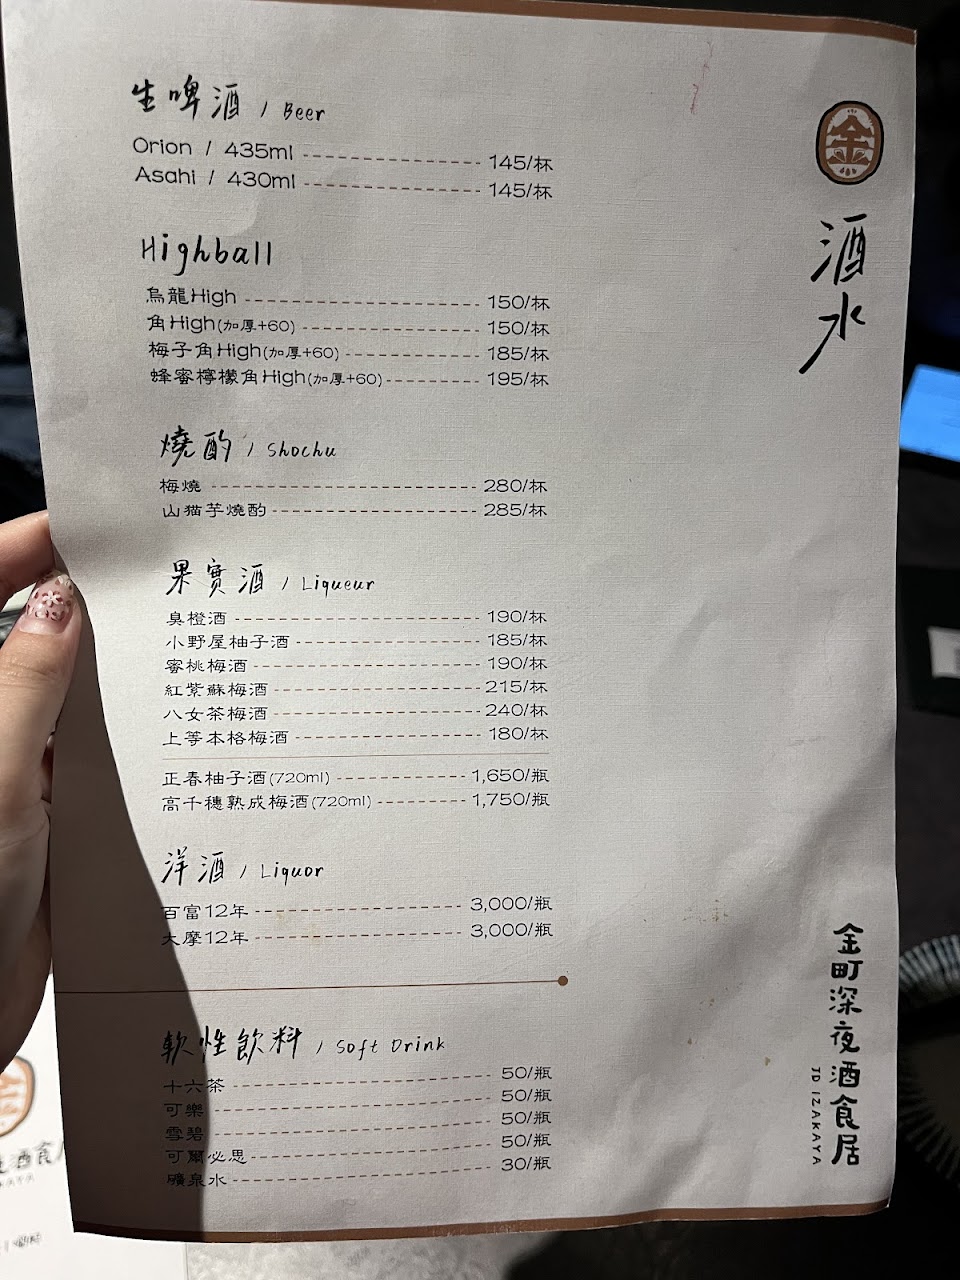 生啤酒 / Beer
Orion / 435ml 145/杯
Asahi / 430ml 145/杯
Highball
烏龍High 150/杯
角High(加厚+60) 150/杯
梅子角High(加厚+60) 185/杯
蜂蜜檸檬角High(加厚+60) 195/杯
燒酌 / Shochu
梅燒 280/杯
山猫芋燒酌 285/杯
果實酒 / Liqueur
臭橙酒 190/杯
小野屋柚子酒 185/杯
蜜桃梅酒 190/杯
紅紫蘇梅酒 215/杯
八女茶梅酒 240/杯
上等本格梅酒 180/杯
正春柚子酒(720ml) 1,650/瓶
高千穗熟成梅酒(720ml) 1,750/瓶
洋酒 / Liquor
百富12年 3,000/瓶
大摩12年 3,000/瓶
軟性飲料 / Soft Drink
十六茶 50/瓶
可樂 50/瓶
雪碧 50/瓶
可爾必思 50/瓶
礦泉水 30/瓶
金
酒水
金町深夜酒食居
JD IZAKAYA
金
酒食居